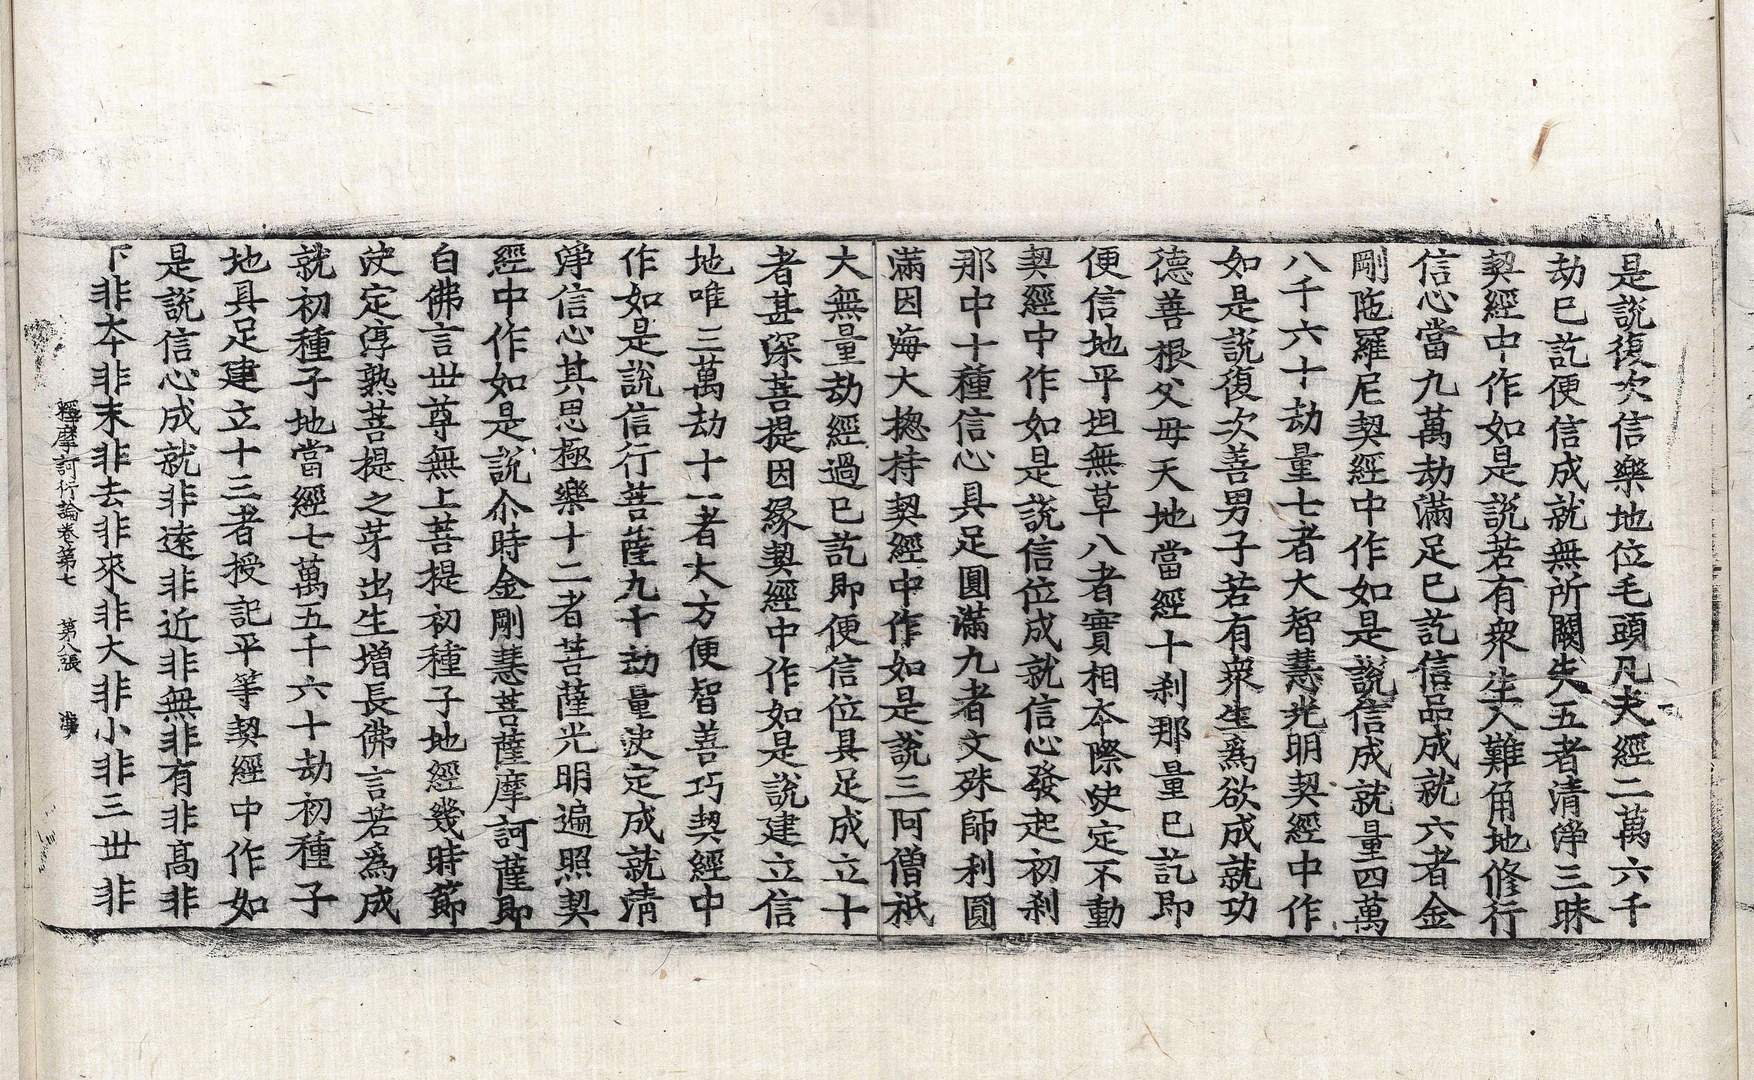 是說復次信樂地位毛頭凡夫經二萬六千
劫已訖便信成就無所闕失五者清淨三昧
契經中作如是說若有衆生入難角地修行
信心當九萬劫滿足已訖信品成就六者金
剛陁羅尼契經中作如是說信成就量四萬
八千六十劫量七者大智慧光明契經中作
如是說復次善男子若有衆生爲欲成就功
德善根父母天地當經十刹那量已訖即
便信地平坦無草八者實相本際决定不動
契經中作如是說信位成就信心發起初刹
那中十種信心具足圓滿九者文殊師利圓
滿因海大揔持契經中作如是說三阿僧祇
大無量劫經過已訖即便信位具足成立十
者甚深菩提因緣契經中作如是說建立信
地唯三萬劫十一者大方便智善巧契經中
作如是說信行菩薩九十劫量决定成就清
淨信心其思極樂十二者菩薩光明遍照契
經中作如是說尒時金剛慧菩薩摩訶薩即
白佛言世尊無上菩提初種子地經幾時節
决定淳熟菩提之芽出生增長佛言若爲成
就初種子地當經七萬五千六十劫初種子
地具足建立十三者授記平等契經中作如
是說信心成就非遠非近非無非有非高非
下非本非末非去非來非大非小非三世非
釋摩訶衍論卷第七 第八張